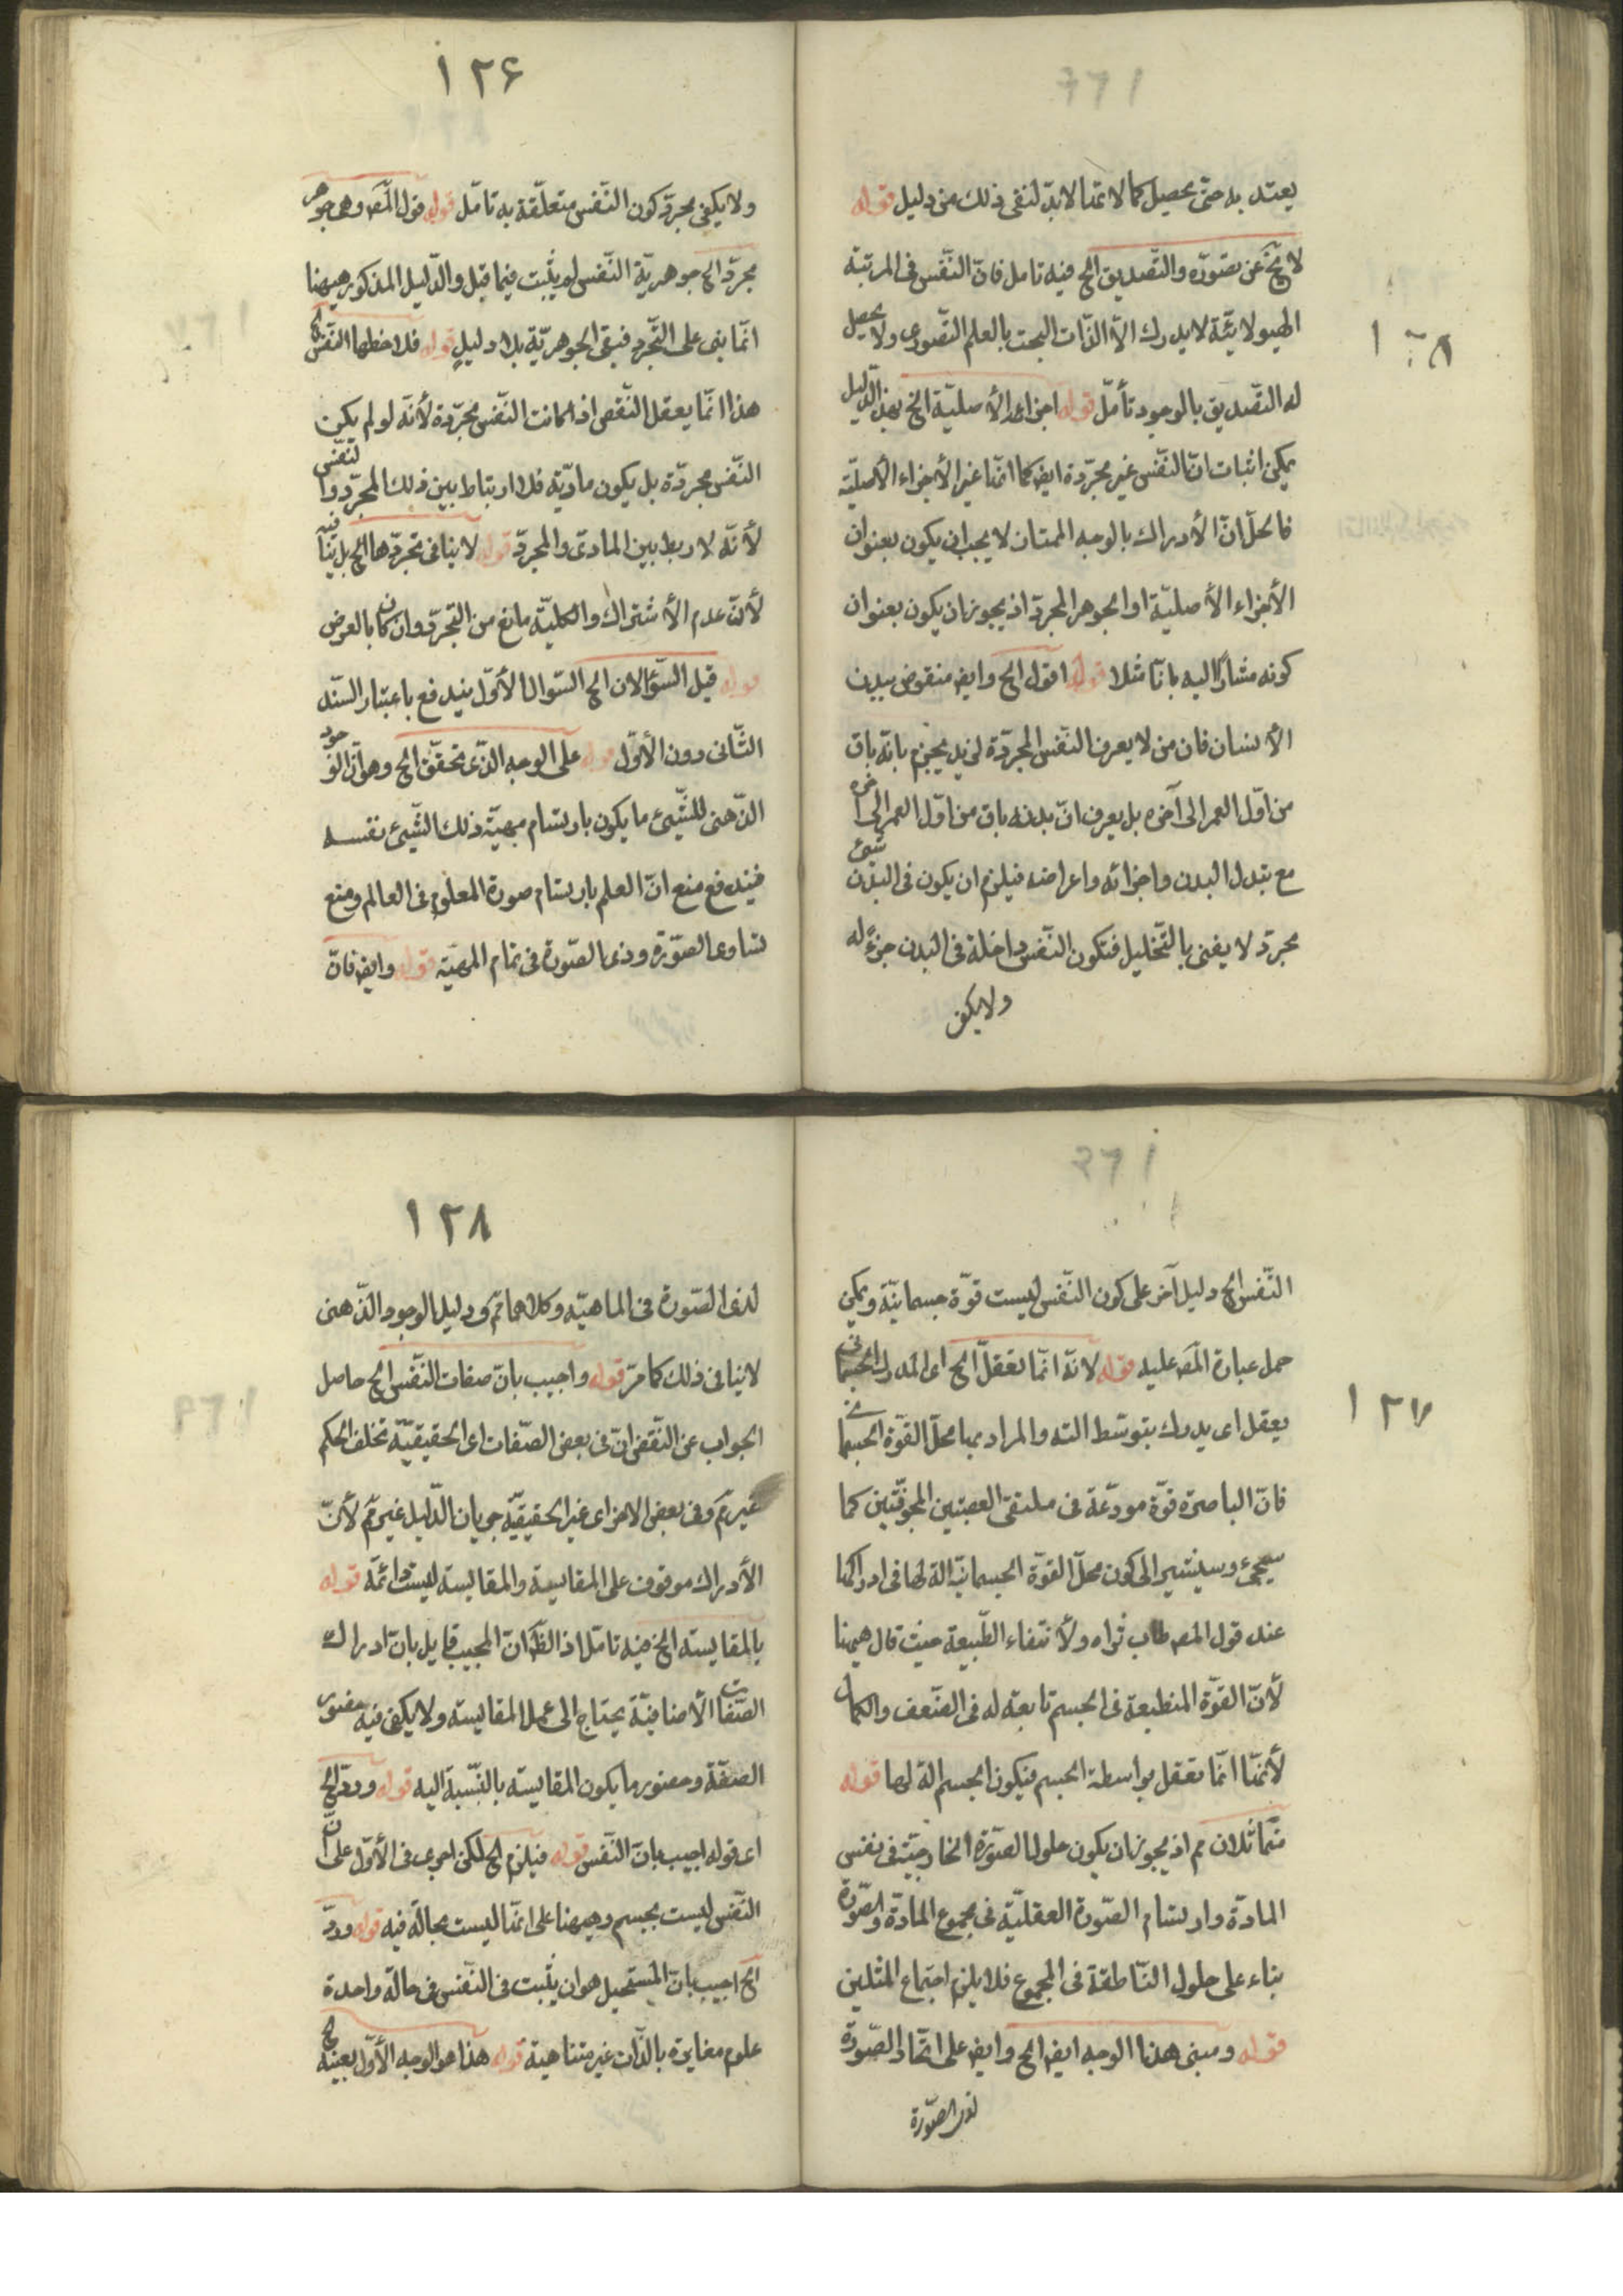 يعتد به حتى يحصل كمالا تمّا لابدّ لنفى ذلك من دليل قوله
لا يخ عن تصوّره والتّصديق الخ فيه تامل فانّ النّفس فى المرتبة
الهيولانيّة لا يدرك الاّ الذّات البحت بالعلم التّصورى ولا يحصل
له التصديق بالوجود تأمّل قوله اجزاء الأصليّة الخ بهذا الدّليل
يمكن اثبات انّ النّفس غير مجرّدة ايض كما انّها غير الأجزاء الأصليّة
فالحلّ انّ الأدراك بالوجه الممتاز لا يجب ان يكون بعنوان
الأجزاء الأصليّة او الجوهر المجرّد اذ يجوز ان يكون بعنوان
كونه مشارًا اليه بانا مثلا قوله اقول الخ وايض منقوض ببدن
الأنسان فان من لا يعرف النّفس المجرّدة لزيد يجزم بانّه باق
من اوّل العمر الى آخره بل يعرف انّ بدنه باق من اوّل العمر الى آخره
مع تبدل البدن واجزائه واعراضه فيلزم ان يكون فى البدن شىء
مجرّد لا يفنى بالتّحليل فتكون النّفس داخلة فى البدن جزءً له
ولا يكفى
١٢٦
ولا يكفى مجرّد كون النّفس متعلّقة به تامّل قوله قول المص وهى جوهر
مجرّد الخ جوهريّة النّفس لم يثبت فيما قبل والدّليل المذكور هيهنا
انّما بنى على التّجرد فبقى الجوهريّة بلا دليل قوله فلاحظها النّفس الخ
هذا انّما يعقل النّقص اذا كانت النّفس مجرّدة لأنّه لو لم يكن
النّفس مجرّدة بل يكون ماديّة فلا ارتباط بين ذلك المجرّد والنّفس
لأنّه لا ربط بين المادى والمجرّد قوله لا ينافى تجرّدها الخ بل ينافيه
لأنّ عدم الأشتراك والكليّة مانع من التجرّد وان كان بالعرض
قوله قيل السّؤالان الخ السّوال الأوّل يندفع باعتبار السّند
الثّانى دون الأوّل قوله على الوجه الذّى تحقّق الخ وهو انّ الوجود
الذّهنى للشّيئ ما يكون بارتسام مهيّة ذلك الشّيئ نفسه
فيندفع منع انّ العلم بارتسام صورة المعلوم فى العالم ومنع
تساوى الصّورة وذى الصّورة فى تمام المهيّة قوله وايض فانّ
١٢٧
النّفس الخ دليل آخر على كون النّفس ليست قوّة جسمانيّة ويمكن
حمل عبارة المص عليه قوله لانّه انّما تعقل الخ اى المدرك الجسمانى
يعقل اى يدرك بتوسّط الته والمراد بها محلّ القوّة الجسمانية
فانّ الباصرة قوّة مودّعة فى ملتقى العصبتين المجوّفتين كما
سيجئ وسيشير الى كون محلّ القوّة الجسمانية الة لها فى ادراكها
عند قول المص طاب ثراه ولأنتفاء الطّبيعة حيث قال هيهنا
لأنّ القوّة المنطبعة فى الجسم تابعة له فى الضّعف والكمال
لأنّها انّما تعقل بواسطة الجسم فيكون الجسم الة لها قوله
متماثلان مم اذ يجوز ان يكون حلول الصّورة الخارجيّة فى نفس
المادّة وارتسام الصّورة العقليّة فى مجموع المادّة والصّورة
بناء على حلول النّاطقة فى المجموع فلا يلزم اجتماع المثلين
قوله ومبنى هذا الوجه ايض الخ وايض على اتّحاد الصّورة
لذى الصّورة
١٢٨
لذى الصّورة فى الماهيّة وكلاهما مم ودليل الوجود الذّهنى
لا ينافى ذلك كما مرّ قوله واجيب بانّ صفات النّفس الخ حاصل
الجواب عن النّقض انّ فى بعض الصّفات اى الحقيقيّة تخلف الحكم
غير مم وفى بعض الاخر اى غير الحقيقيّة جريان الدّليل غير مم لأنّ
الأدراك موقوف على المقايسة والمقايسة ليست دائمّة قوله
بالمقايسة الخ فيه تامّل اذ الظ انّ المجيب قايل بانّ ادراك
الصّفات الأضافيّة يحتاج الى عمل المقايسة ولا يكفى فيه حضور
الصفّة وحضور ما يكون المقايسة بالنّسبة اليه قوله وردّ الخ
اى قوله اجيب بانّ النّفس قوله فيلزم الخ لكن اجرى فى الأوّل على انّ
النّفس ليست بجسم وهيهنا على انّها ليست بحالّة فيه قوله وردّ
الخ اجيب بانّ المستحيل هو ان يثبت فى النّفس فى حالة واحدة
علوم مغايرة بالذّات غير متناهية قوله هذا هو الوجه الأوّل بعينه الخ